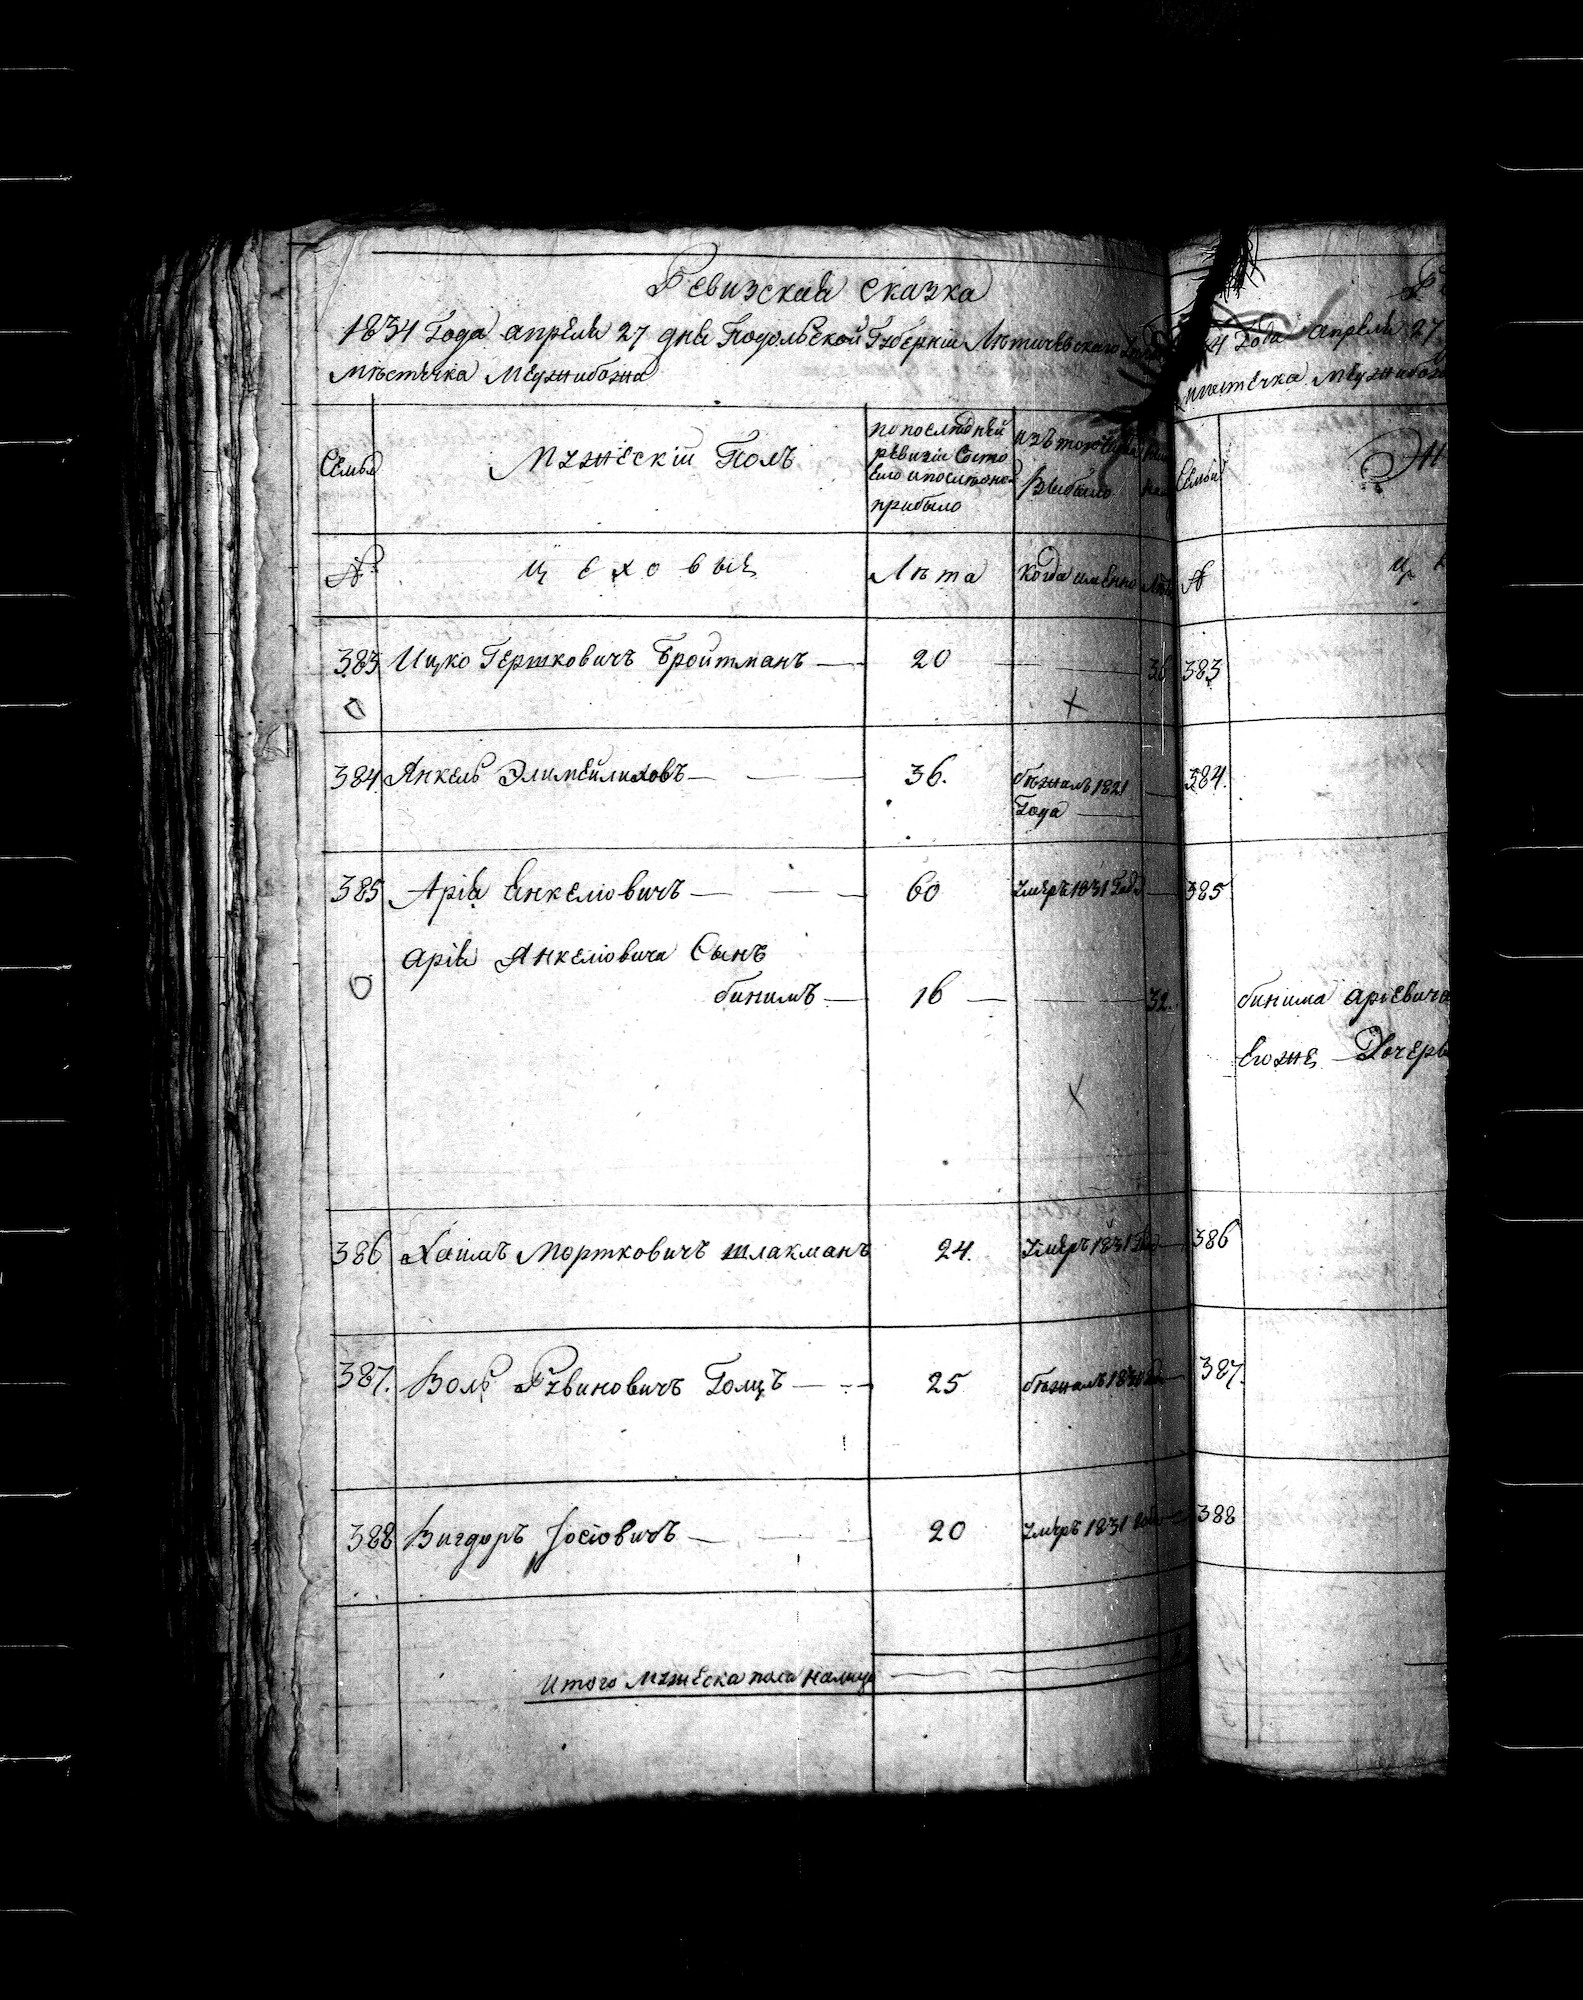 Ревизская сказка
1834 Года апреля 27 дня Подольской Губерніи Летичевскаго
местечка Меджибожа
Семья
Мужескій Полъ
по последней
ревизіи состо
яло и после оной
прибыло
изъ того числа
выбыло
№
цеховые
Лета
когда именно
383 Ицко Гершковичъ Бройтманъ — 20 — 36
384 Янкель Элимейлиховъ — 36. бежалъ 1821
Года
385 Арія Янкеліовичъ — 60 умеръ 1831 Года
Арія Янкеліовича Сынъ
бинимъ — 16 — 32.
386 Хаимъ Мортковичъ шлакманъ 24. умеръ 1831
387. Воль Рувиновичъ Голцъ — 25 бежалъ 1830
388 Вигдоръ Іосіовичъ — 20 умеръ 1831
Итого мужеска пола налицо
4 Года апреля 27
местечка Меджибожа
Семьи
№
383
384.
385
бинима аріевича
Егоже Дочерь
386
387.
388